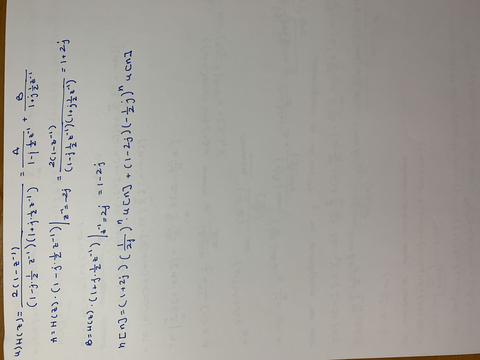 4) H(z) = 2(1-z⁻¹) / (1-j·½z⁻¹)(1+j·½z⁻¹) = A / 1-j½z⁻¹ + B / 1+j½z⁻¹
A = H(z)·(1-j·½z⁻¹)|z⁻¹=-2j = 2(1-z⁻¹) / (1-j½z⁻¹)(1+j½z⁻¹) = 1+2j
B = H(z)·(1+j·½z⁻¹)|z⁻¹=2j = 1-2j
h[n] = (1+2j)(1/2j)ⁿ·u[n] + (1-2j)(-½j)ⁿ u[n]